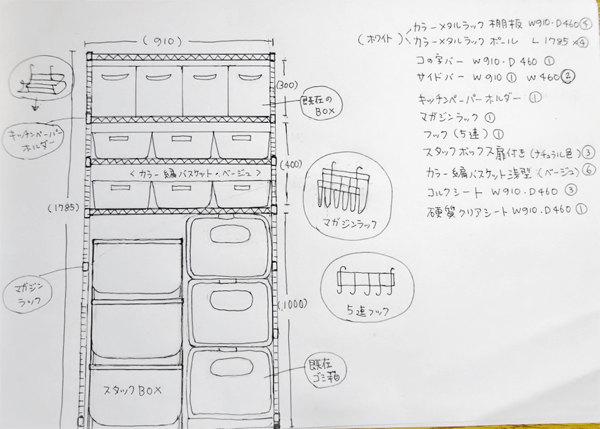 (910)
(ホワイト)
カラーメタルラック 棚板 W910・D460 ④
カラーメタルラック ポール L 1785 ×④
コの字バー W910・D 460 ①
サイドバー W910 ① W460 ②
キッチンペーパーホルダー ①
マガジンラック ①
フック (5連) ①
スタックボックス扉付き (ナチュラル色) ③
カラー編バスケット浅型 (ベージュ) ⑥
コルクシート W910・D460 ③
硬質クリアシート W910・D460 ①
(300)
既在の
BOX
キッチンペーパー
ホルダー
(400)
<カラー編バスケット・ベージュ>
(1785)
マガジンラック
マガジン
ラック
(1000)
5連フック
スタックBOX
既在
ゴミ箱